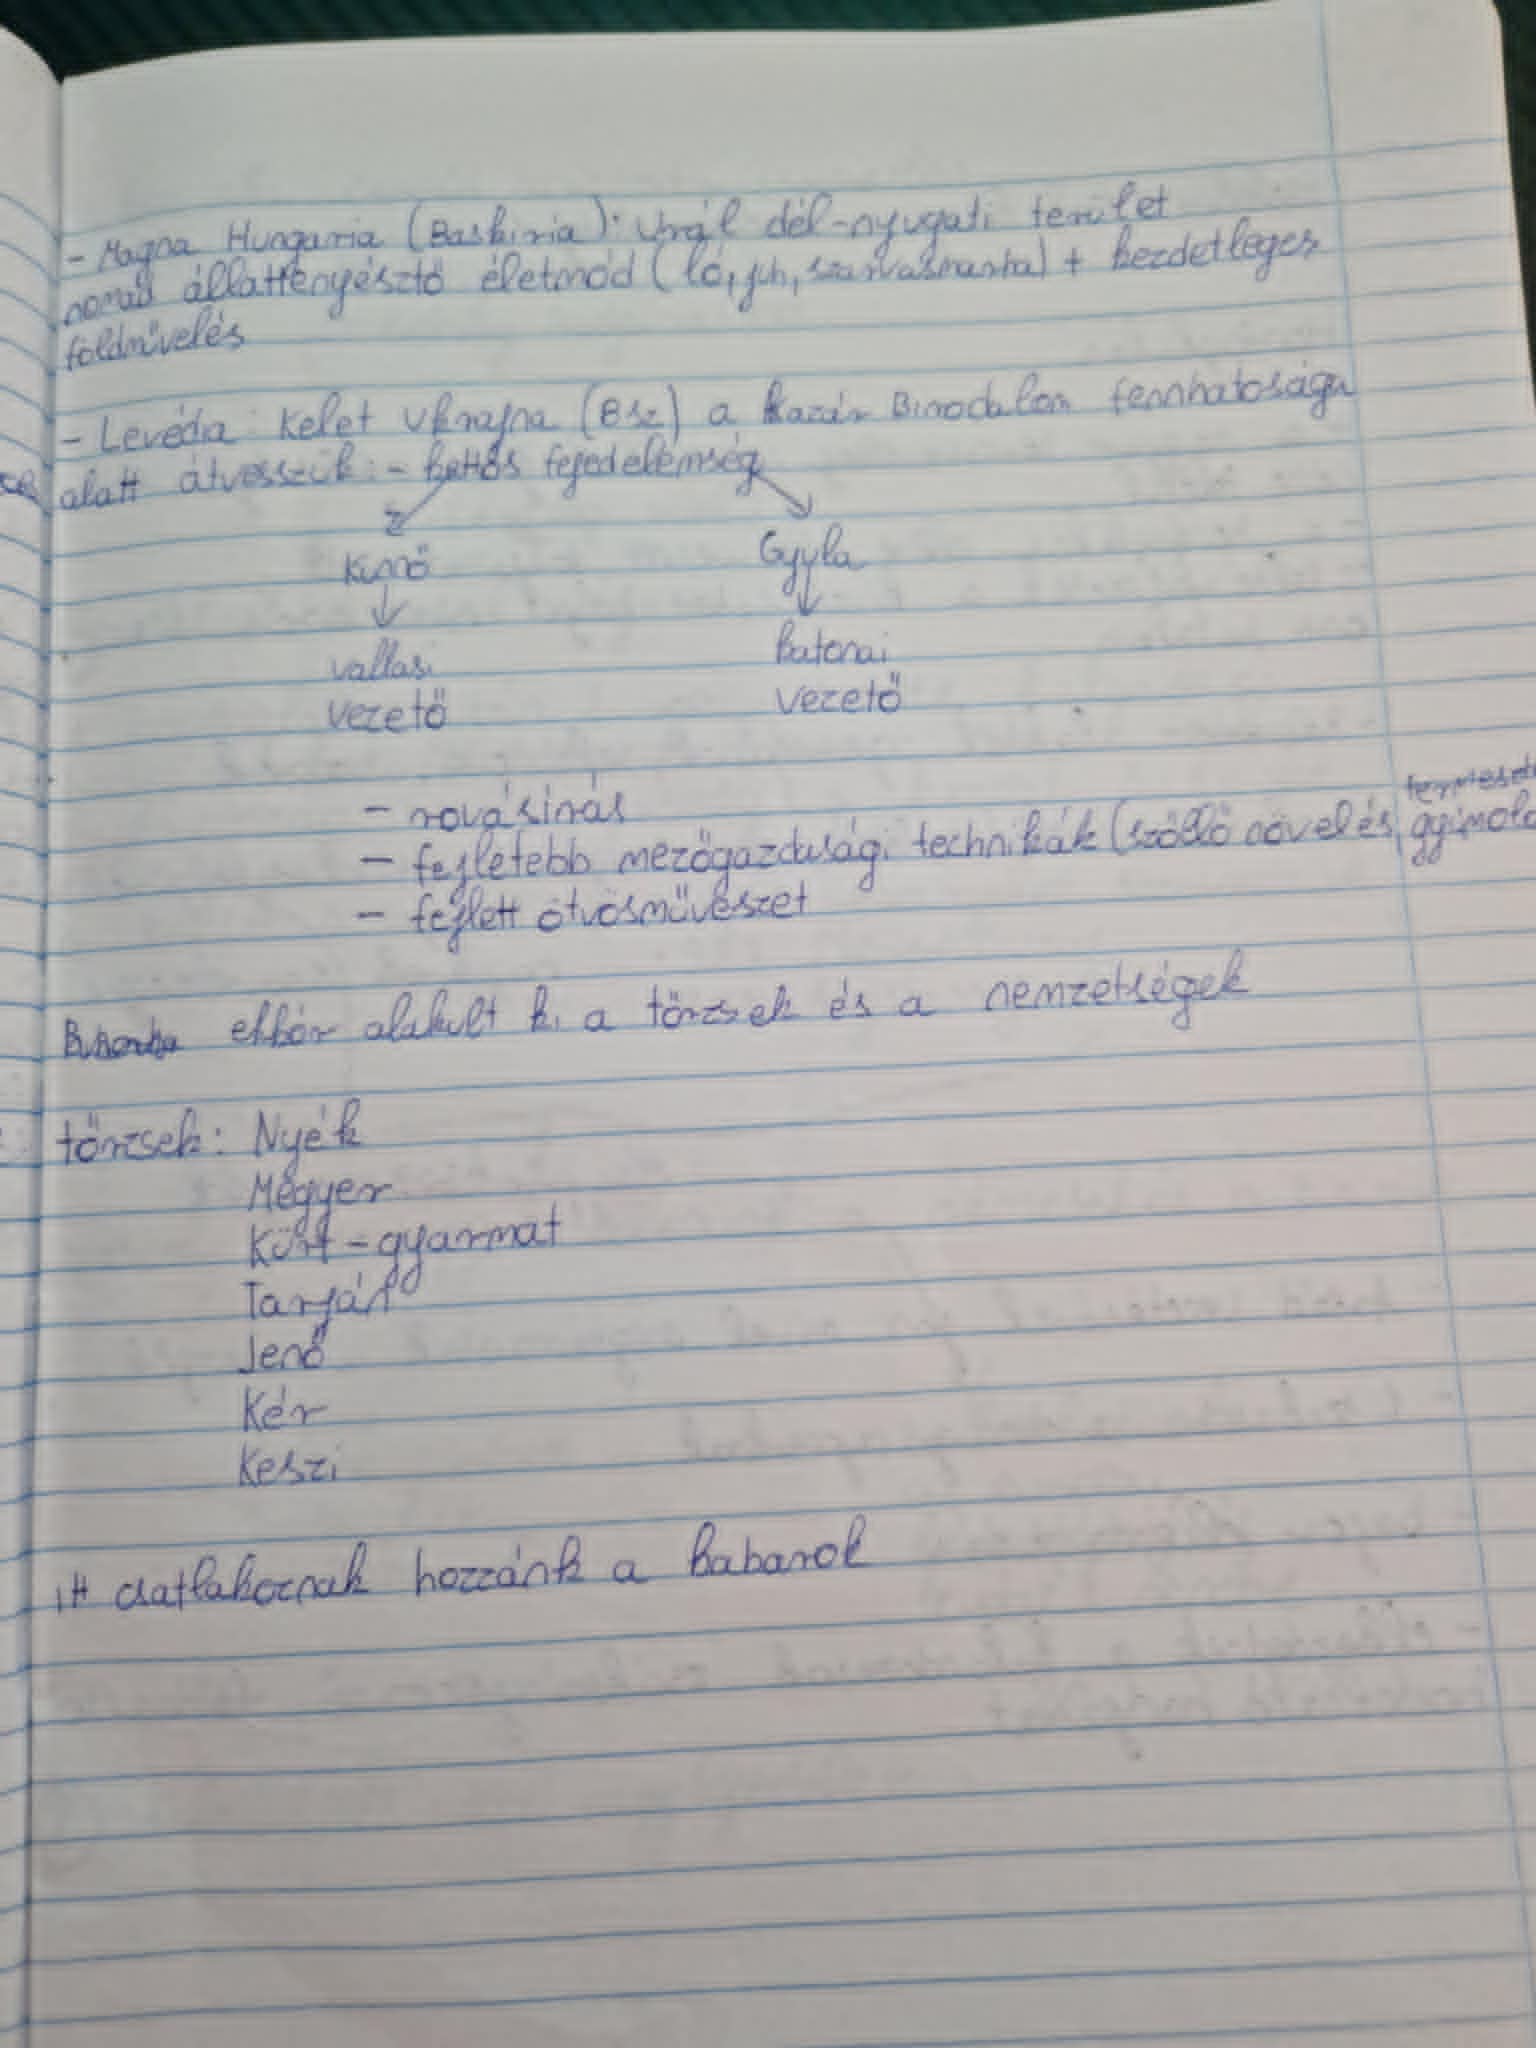 - Magna Hungaria (Baskiria): Urál dél-nyugati terület
nomád állattenyésztő életmód (ló, juh, szarvasmarha) + kezdetleges
földművelés
- Levédia: Kelet Ukrajna (8sz) a kazár Birodalom fennhatósága
alatt átvesszük: - kettős fejedelemség
Kündü Gyula
vallási katonai
vezető vezető
- rovásírás
- fejletebb mezőgazdasági technikák (szőllő növelés, gyümölc
termeszté
- fejlett ötvösművészet
ekkor alakult ki a törzsek és a nemzetségek
törzsek: Nyék
Megyer
Kürt-gyarmat
Tarján
Jenő
Kér
Keszi
itt csatlakoznak hozzánk a kabarok